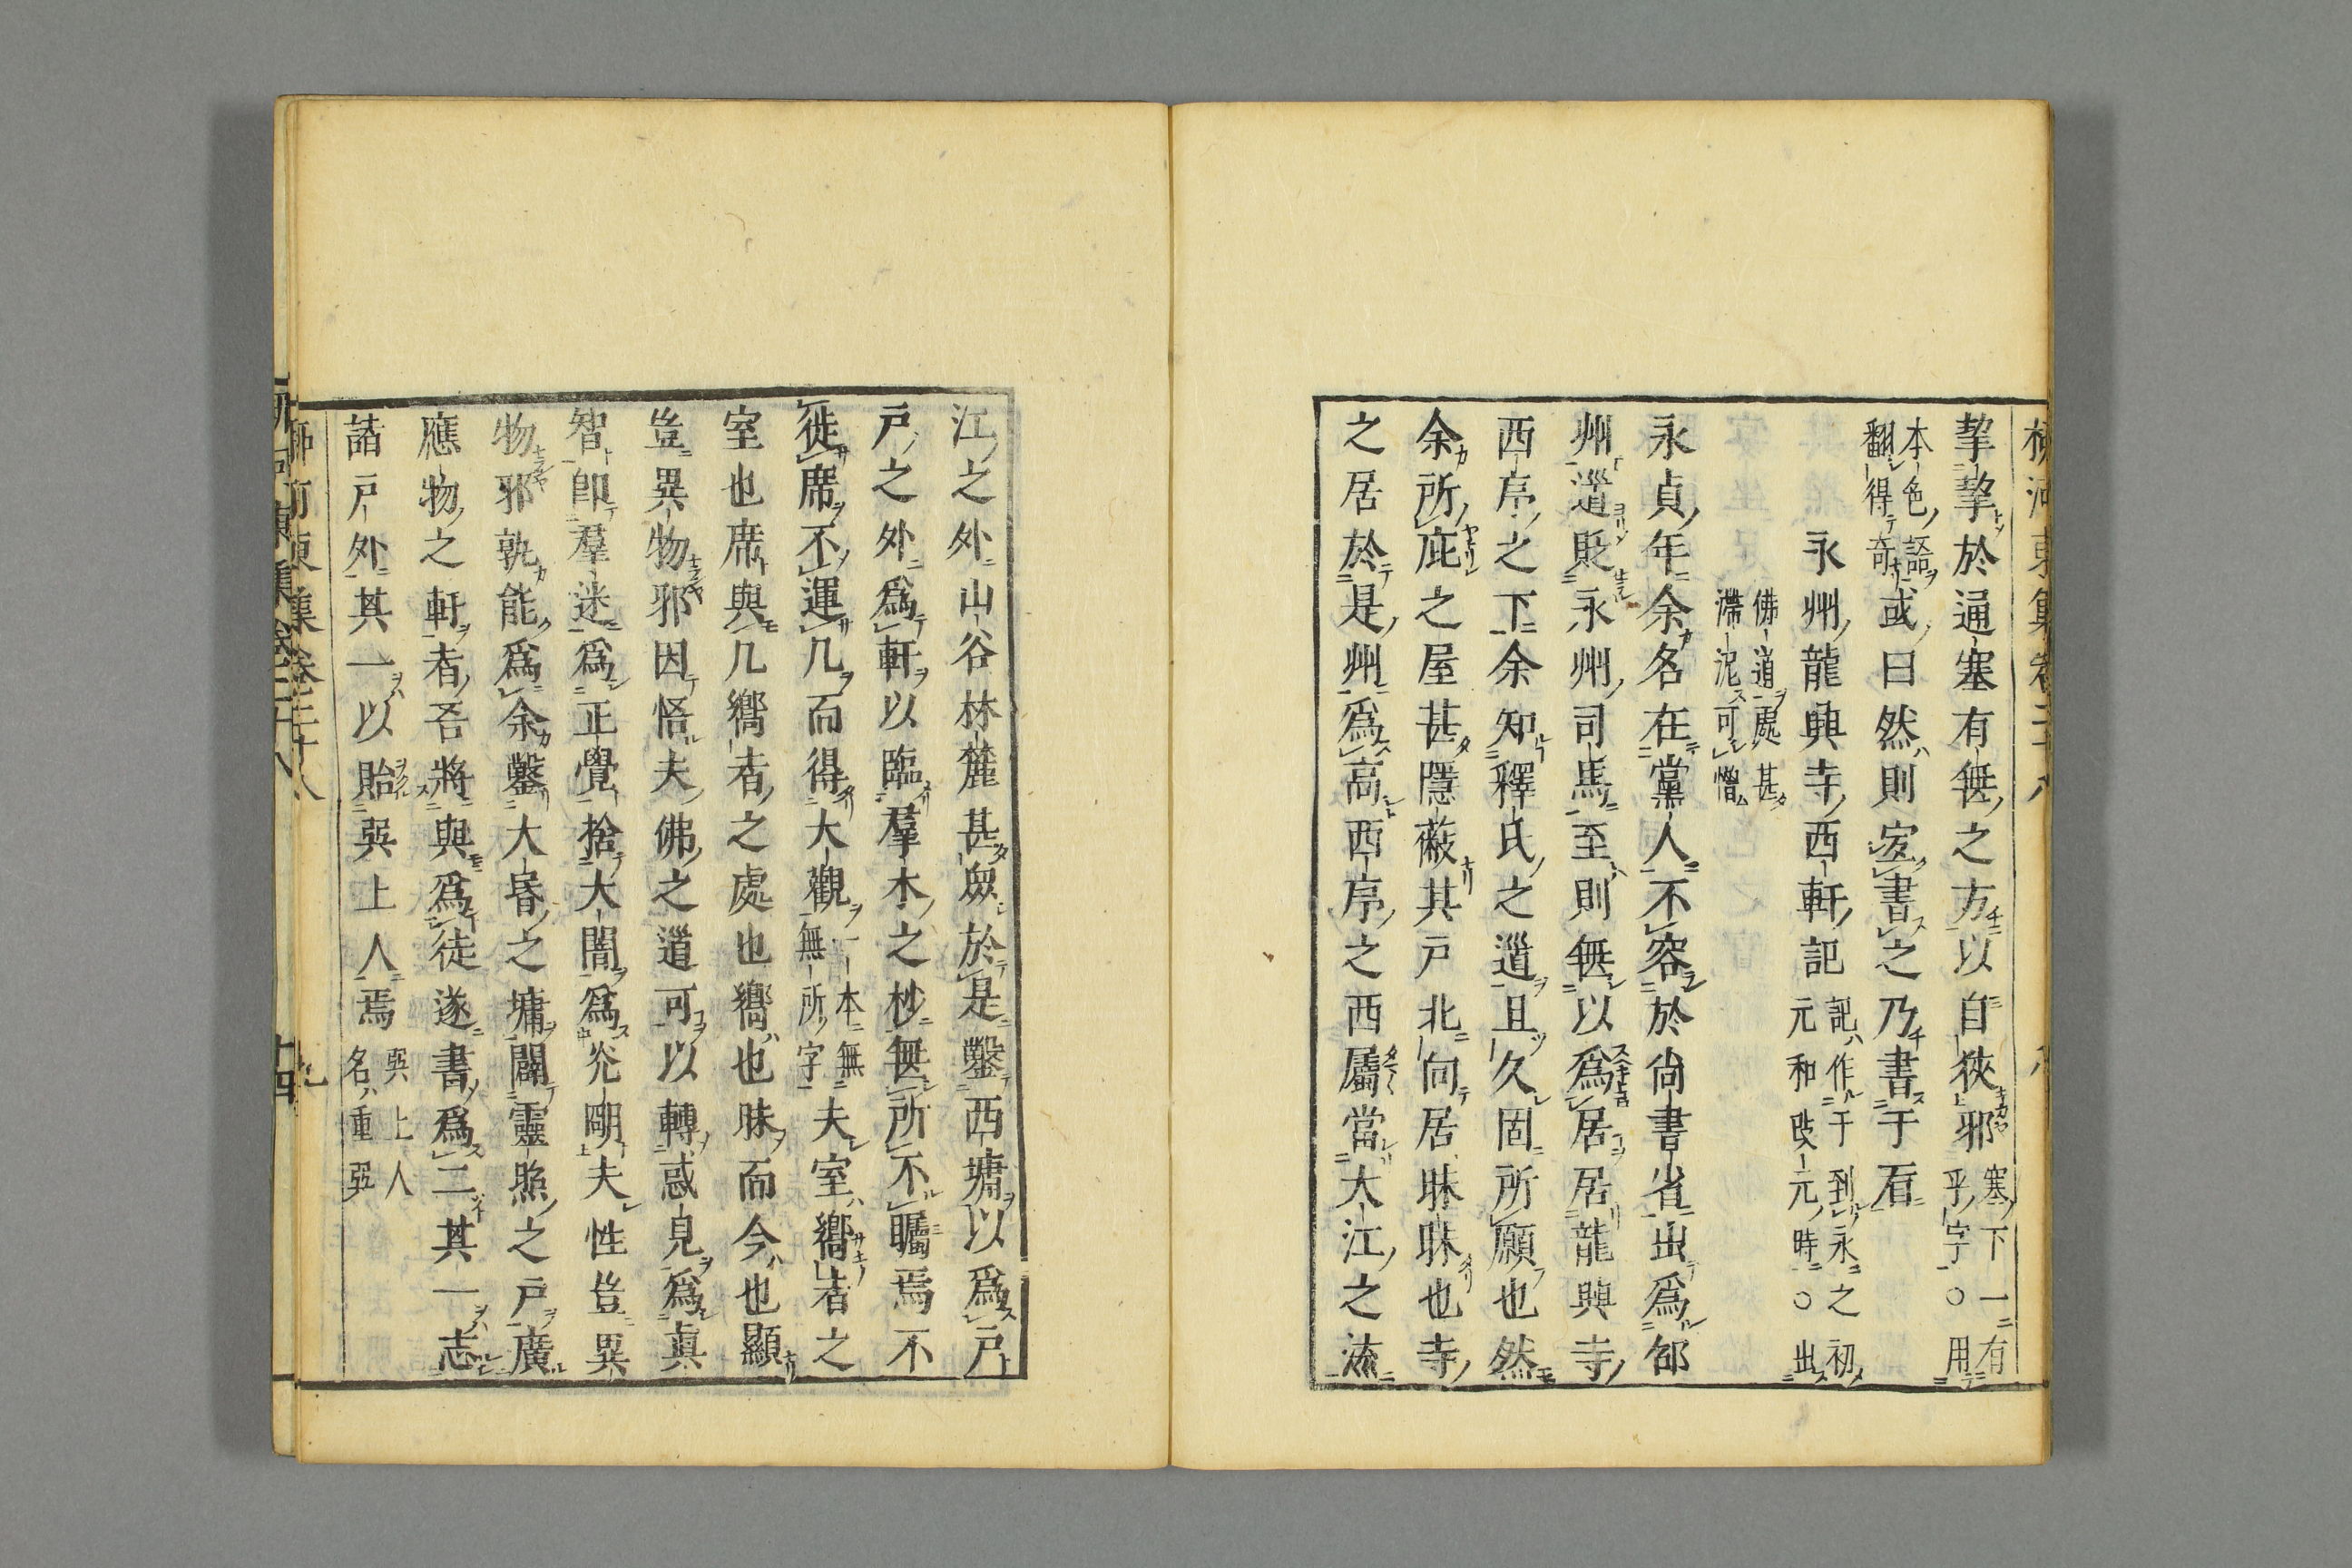 挈挈於通塞有無之方以自狹邪塞下一有乎字○用
本色語翻得奇或曰然則宜書之乃書于石
永州龍興寺西軒記記作于到永之初元和改元時○出
佛道處甚滯泥可憎
永貞年余名在黨人不容於尚書省出為邵
州道貶永州司馬至則無以為居居龍興寺
西序之下余知釋氏之道且久固所願也然
余所庇之屋甚隱蔽其戶北向居昧昧也寺
之居於是州為高西序之西屬當大江之流
江之外山谷林麓甚眾於是鑿西墉以為戶
戶之外為軒以臨羣木之杪無所不矚焉不
徙席不運几而得大觀一本無無所字夫室嚮者之
室也席與几嚮者之處也嚮也昧而今也顯
豈異物邪因悟夫佛之道可以轉惑見為真
智即羣迷為正覺捨大闇為光明夫性豈異
物邪孰能為余鑿大昏之墉闢靈照之戶廣
應物之軒者吾將與為徒遂書為二其一志
諸戶外其一以貽巽上人焉巽上人名重巽